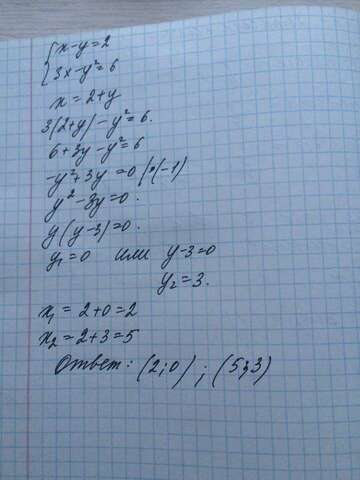 { x-y=2
{ 3x-y²=6
x=2+y
3(2+y)-y²=6.
6+3y-y²=6
-y²+3y=0 |·(-1)
y²-3y=0.
y(y-3)=0.
y₁=0 или y-3=0
y₂=3.
x₁=2+0=2
x₂=2+3=5
Ответ: (2;0) ; (5;3)